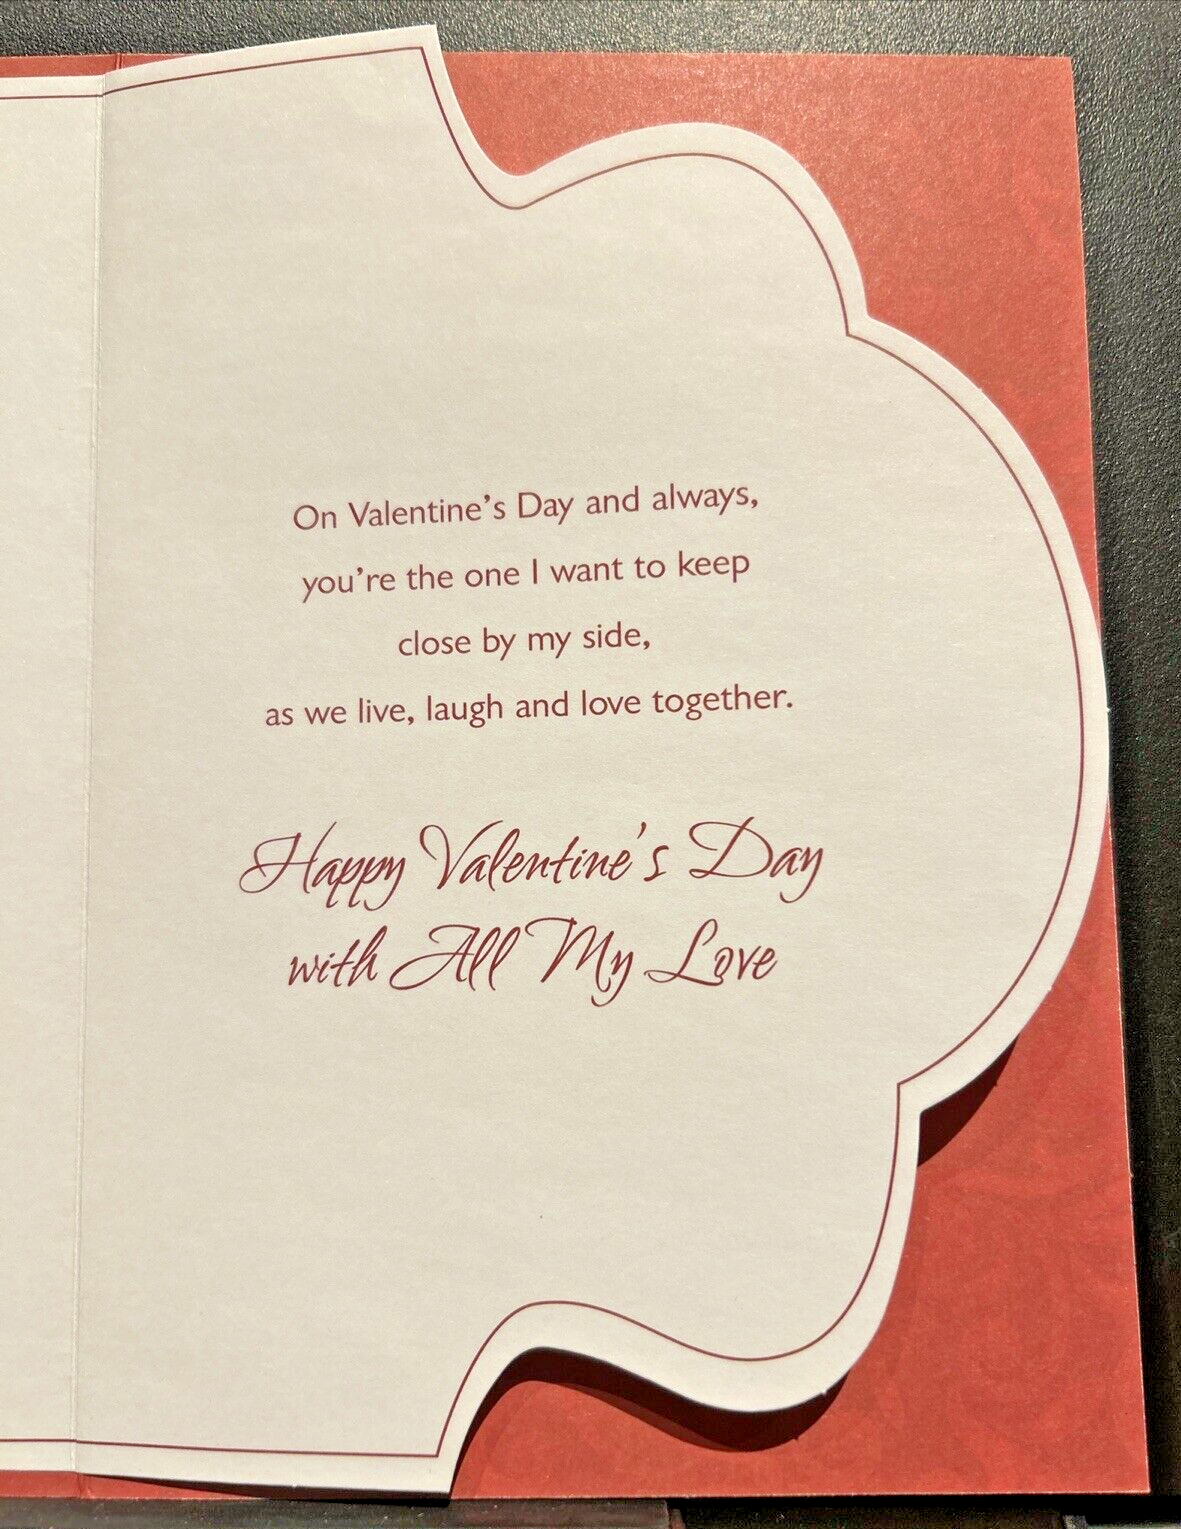 On Valentine's Day and always,
you're the one I want to keep
close by my side,
as we live, laugh and love together.
Happy Valentine's Day
with All My Love